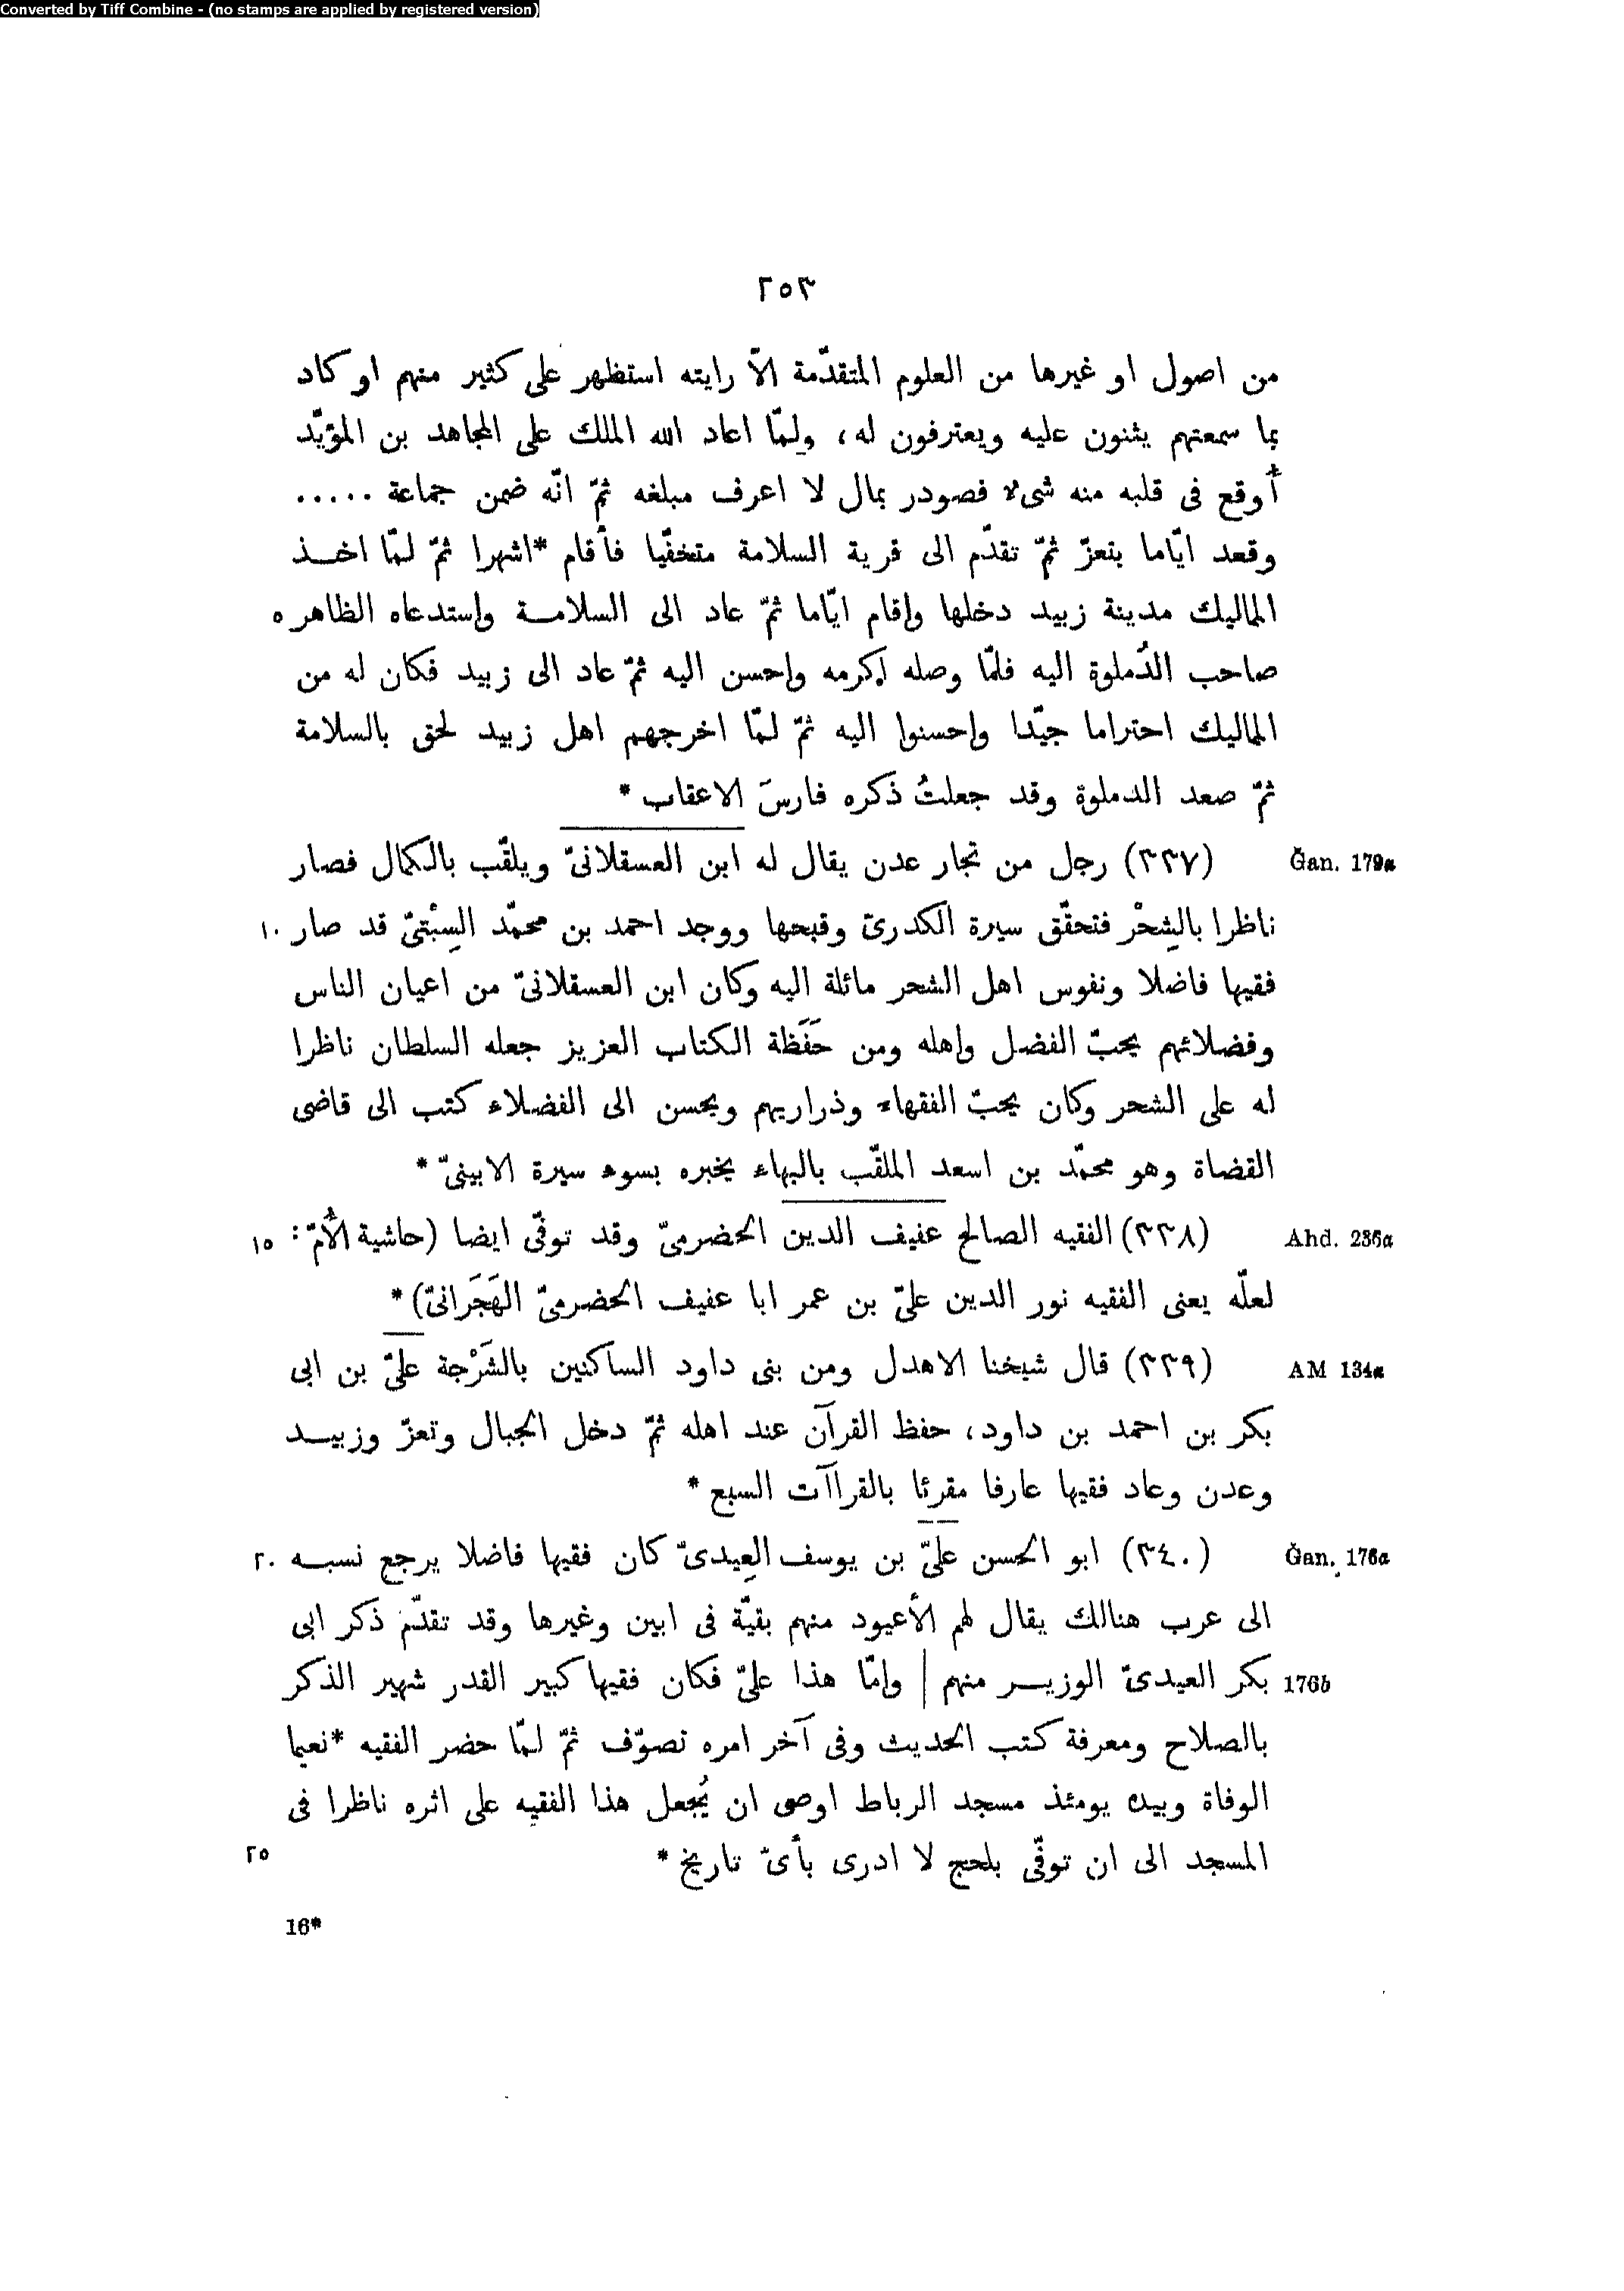 Converted by Tiff Combine - (no stamps are applied by registered version)
٢٥٣
من اصول او غيرها من العلوم المتقدّمة الّا رايته استظهر على كثير منهم او كاد
بما سمعتهم يثنون عليه ويعترفون له، ولمّا اعاد الله الملك على المجاهد بن المؤيّد
أوقع فى قلبه منه شىء فصودر بمال لا اعرف مبلغه ثمّ انّه ضمن جماعة .....
وقعد ايّاما بتعزّ ثمّ تقدّم الى قرية السلامة متخفّيا فأقام *اشهرا ثمّ لمّا اخذ
المماليك مدينة زبيد دخلها واقام ايّاما ثمّ عاد الى السلامة واستدعاه الظاهر ٥
صاحب الدُملوة اليه فلمّا وصله اكرمه واحسن اليه ثمّ عاد الى زبيد فكان له من
المماليك احتراما جيّدا واحسنوا اليه ثمّ لمّا اخرجهم اهل زبيد لحق بالسلامة
ثمّ صعد الدملوة وقد جعلتُ ذكره فارسَ الاعقاب *
Ǧan. 179a (٢٣٧) رجل من تجار عدن يقال له ابن العسقلانىّ ويلقّب بالكمال فصار
ناظرا بالشِحْر فتحقّق سيرة الكدرىّ وقبحها ووجد احمد بن محمّد السِبْتىّ قد صار ١٠
فقيها فاضلا ونفوس اهل الشحر مائلة اليه وكان ابن العسقلانىّ من اعيان الناس
وفضلائهم يحبّ الفضل واهله ومن حَفَظة الكتاب العزيز جعله السلطان ناظرا
له على الشحر وكان يحبّ الفقهاء وذراريهم ويحسن الى الفضلاء كتب الى قاضى
القضاة وهو محمّد بن اسعد الملقّب بالبهاء يخبره بسوء سيرة الابينىّ *
Ahd. 235a (٢٣٨) الفقيه الصالح عفيف الدين الحضرمىّ وقد توفّى ايضا (حاشية الأُمّ: ١٥
لعلّه يعنى الفقيه نور الدين علىّ بن عمر ابا عفيف الحضرمىّ الهَجَرانىّ) *
AM 134a (٢٣٩) قال شيخنا الاهدل ومن بنى داود الساكنين بالشَرْجة علىّ بن ابى
بكر بن احمد بن داود، حفظ القرآن عند اهله ثمّ دخل الجبال وتعزّ وزبيد
وعدن وعاد فقيها عارفا مقرئا بالقراآت السبع *
Ǧan. 176a (٢٤٠) ابو الحسن علىّ بن يوسف العِيدىّ كان فقيها فاضلا يرجع نسبه ٢٠
الى عرب هنالك يقال لهم الأعيود منهم بقيّة فى ابين وغيرها وقد تقدّم ذكر ابى
176b بكر العيدىّ الوزير منهم | وامّا هذا علىّ فكان فقيها كبير القدر شهير الذكر
بالصلاح ومعرفة كتب الحديث وفى آخر امره تصوّف ثمّ لمّا حضر الفقيه *نعيما
الوفاة وبيده يومئذ مسجد الرباط اوصى ان يُجعل هذا الفقيه على اثره ناظرا فى
المسجد الى ان توفّى بلحج لا ادرى بأىّ تاريخ * ٢٥
16*